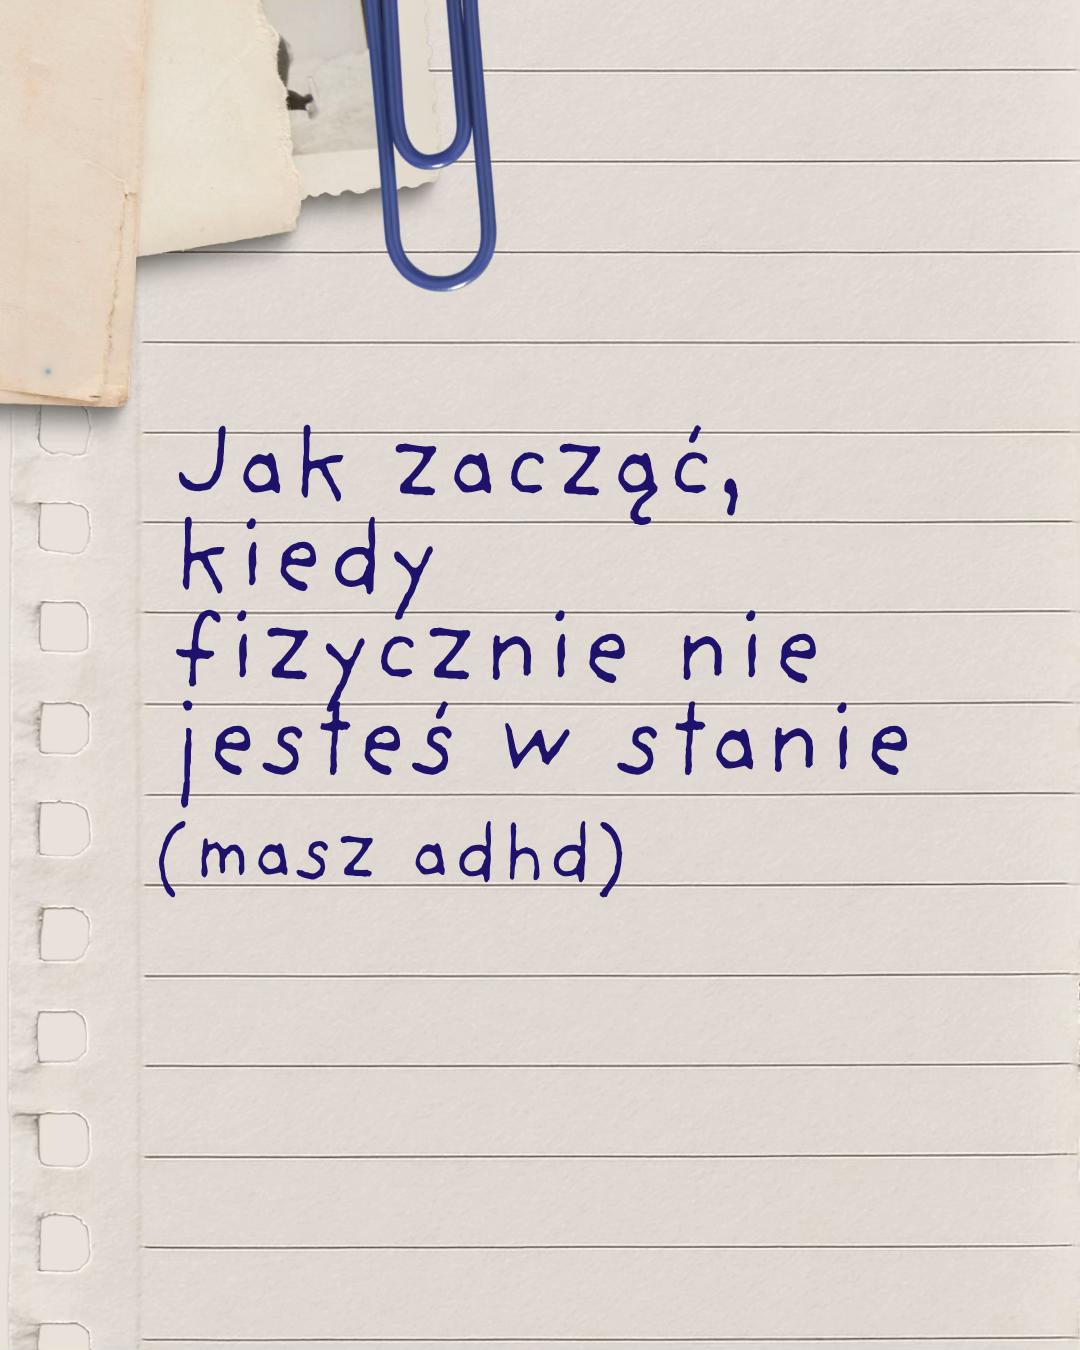 Jak zacząć,
kiedy
fizycznie nie
jesteś w stanie
(masz adhd)